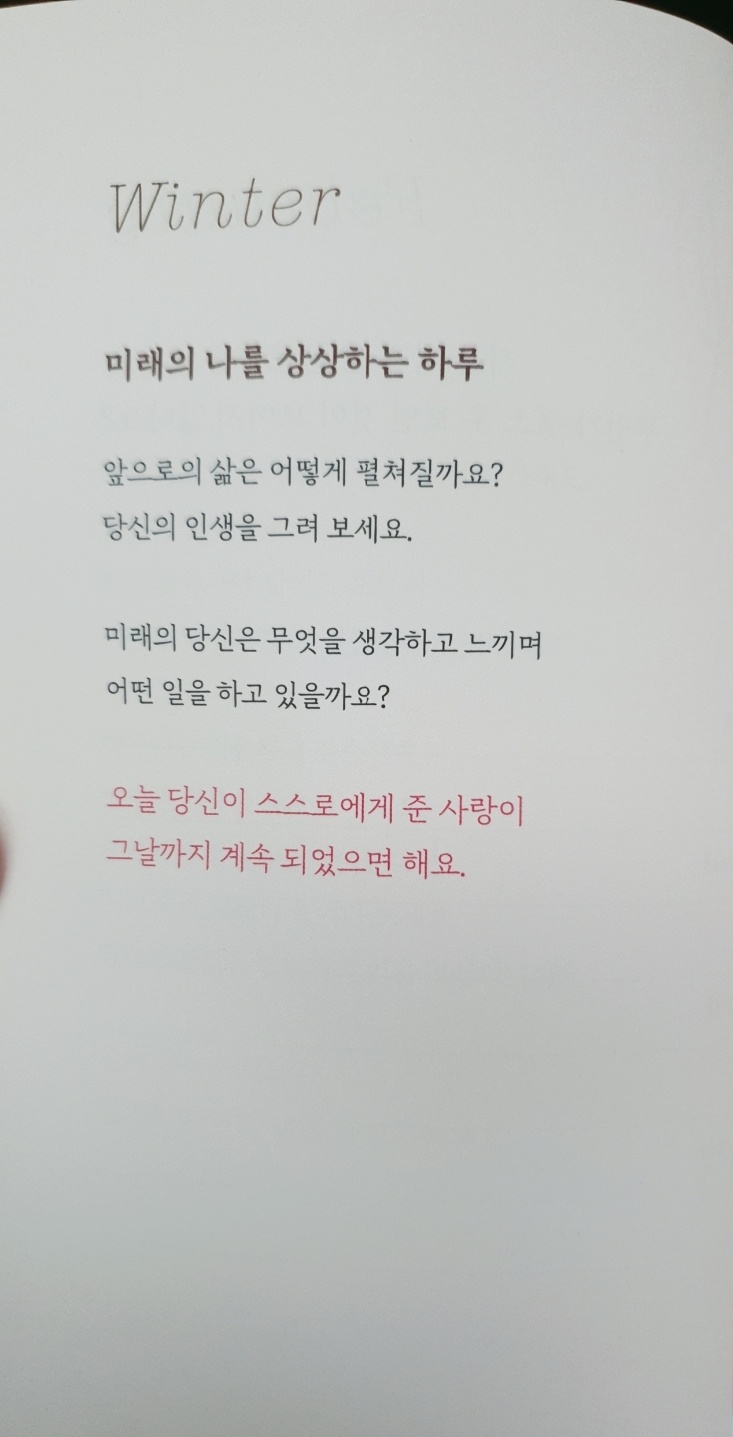 Winter
미래의 나를 상상하는 하루
앞으로의 삶은 어떻게 펼쳐질까요?
당신의 인생을 그려 보세요.
미래의 당신은 무엇을 생각하고 느끼며
어떤 일을 하고 있을까요?
오늘 당신이 스스로에게 준 사랑이
그날까지 계속 되었으면 해요.